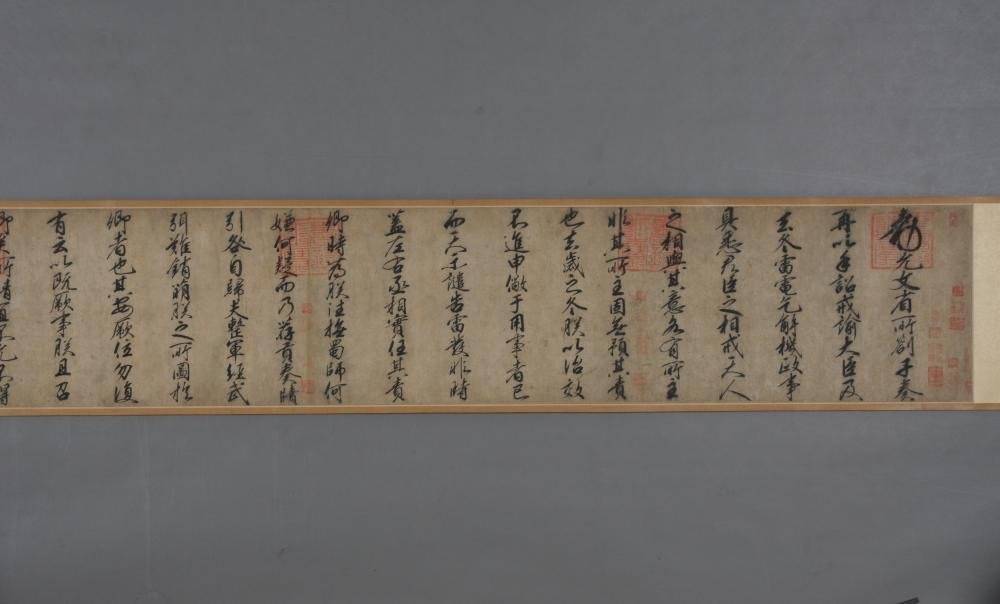 敕允文省所劄子奏
再以手詔戒諭大臣及
去冬雷電乞解機政事
具悉君臣之相戒天人
之相與其意各有所主
非其所主固無預其責
也去歲之冬朕以治效
不進申儆于用事者已
而天示譴告雷發非時
蓋左右丞相實任其責
卿時為朕往撫蜀師何
嫌何疑而乃荐有奏牘
引咎自歸夫整軍經武
弭難銷萌朕之所圖惟
卿者也其安厥位勿復
有云以既厥事朕且召
卿矣所請宜不允不得